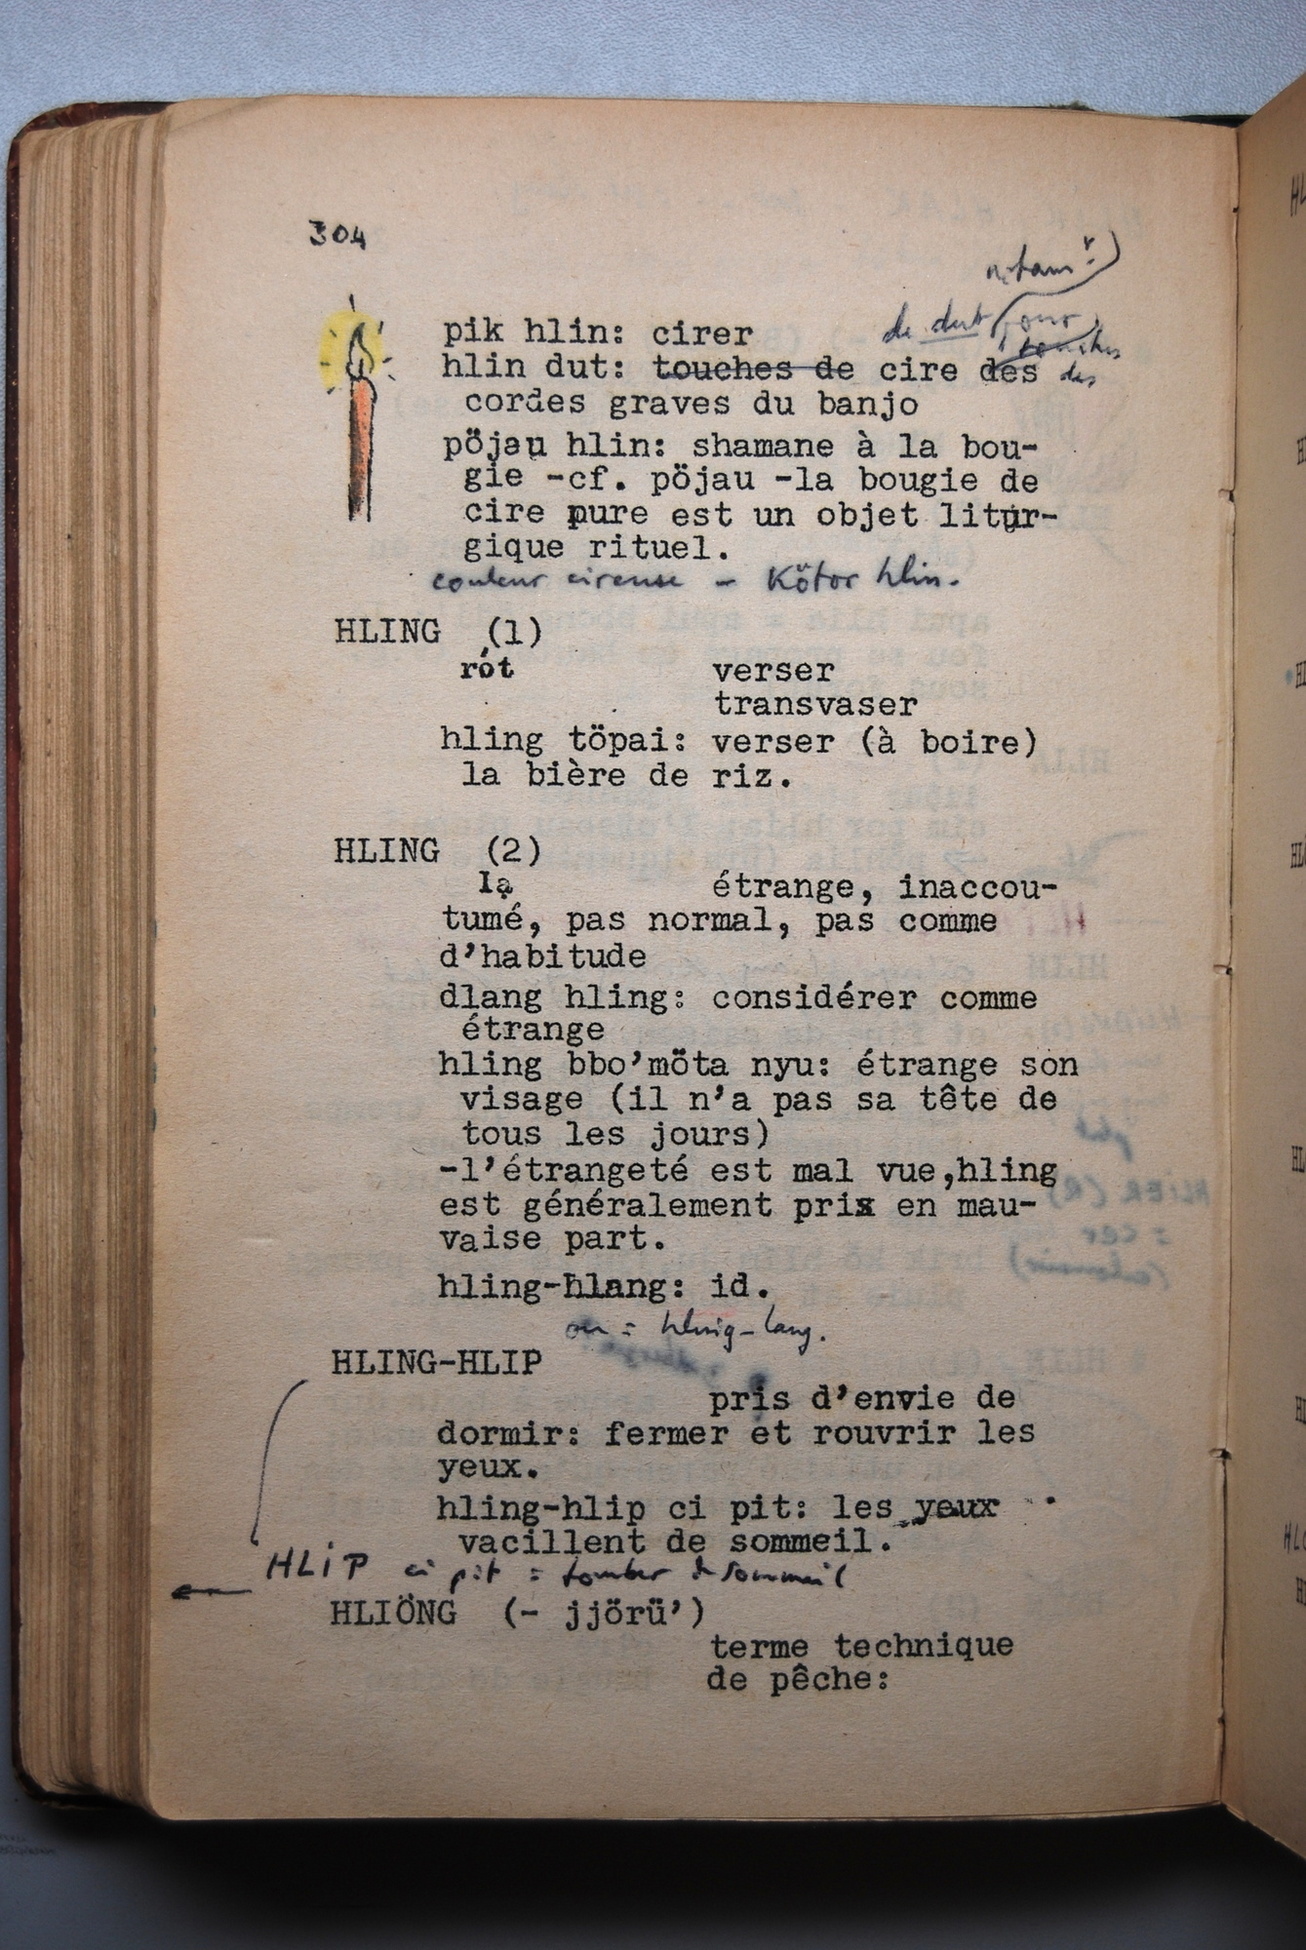 304
notam
pik hlin: cirer de dut pour
hlin dut: touches de cire des touches des
cordes graves du banjo
pöjau hlin: shamane à la bou-
gie -cf. pöjau -la bougie de
cire pure est un objet litur-
gique rituel.
couleur cireuse - Kötor hlin.
HLING (1)
rót verser
transvaser
hling töpai: verser (à boire)
la bière de riz.
HLING (2)
lạ étrange, inaccou-
tumé, pas normal, pas comme
d'habitude
dlang hling: considérer comme
étrange
hling bbo'möta nyu: étrange son
visage (il n'a pas sa tête de
tous les jours)
-l'étrangeté est mal vue,hling
est généralement pris en mau-
vaise part.
hling-hlang: id.
ou = hling-lang.
HLING-HLIP
pris d'envie de
dormir: fermer et rouvrir les
yeux.
hling-hlip ci pit: les yeux
vacillent de sommeil.
HLIP ci pit = tomber de sommeil
HLIÖNG (- jjörü')
terme technique
de pêche: